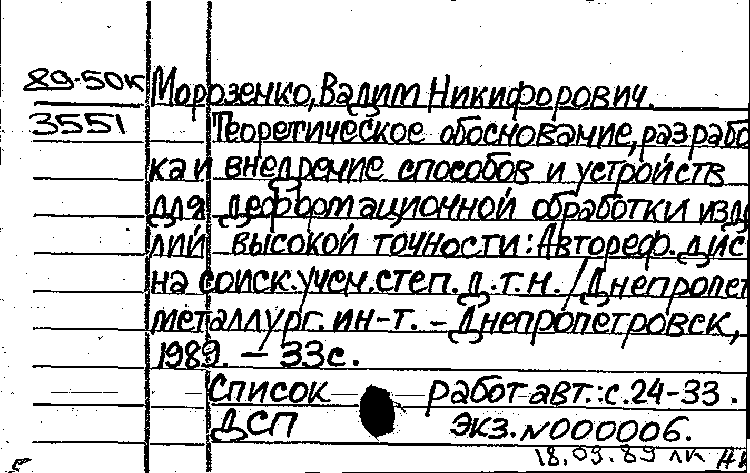 89-50к Морозенко, Вадим Никифорович.
3551 Теоретическое обоснование, разрабо
ка и внедрение способов и устройств
для деформационной обработки изде
лий высокой точности: Автореф. дис
на соиск. учен. степ. д.т.н. / Днепропет
металлург. ин-т. – Днепропетровск,
1989. – 33с.
Список работ авт.: с. 24-33.
ДСП Экз. №000006.
18.09.89 лк